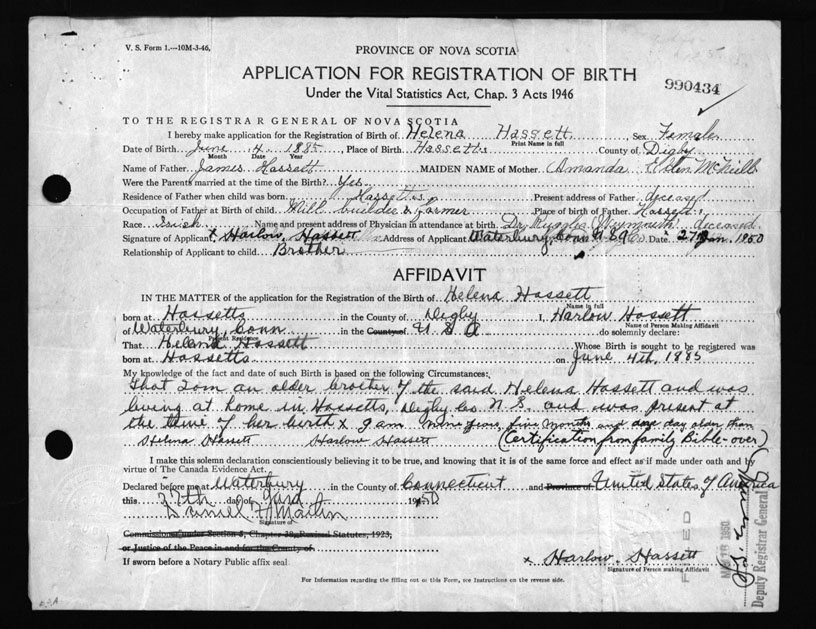 V. S. Form 1.—10M-3-46.
PROVINCE OF NOVA SCOTIA
APPLICATION FOR REGISTRATION OF BIRTH
990434
Under the Vital Statistics Act, Chap. 3 Acts 1946
TO THE REGISTRAR GENERAL OF NOVA SCOTIA
I hereby make application for the Registration of Birth of Helena Hassett Sex Female
Print Name in full
Date of Birth June 4 1885, Place of Birth Hassetts County of Digby
Month Date Year
Name of Father James Hassett MAIDEN NAME of Mother Amanda McNeill
Were the Parents married at the time of the Birth? Yes
Residence of Father when child was born Hassetts Present address of Father deceased
Occupation of Father at Birth of child Mill builder & Farmer Place of birth of Father Hassetts
Race Irish Name and present address of Physician in attendance at birth Dr Ruggles Weymouth deceased
Signature of Applicant x Harlow Hassett Address of Applicant Waterbury, Conn U S A Date 27 Jan. 1950
Relationship of Applicant to child Brother
AFFIDAVIT
IN THE MATTER of the application for the Registration of the Birth of Helena Hassett
Name in full
born at Hassetts in the County of Digby I, Harlow Hassett
Name of Person Making Affidavit
of Waterbury Conn in the County of U S A do solemnly declare:
Present Residence
That Helena Hassett Whose Birth is sought to be registered was
born at Hassetts on June 4th, 1885
My knowledge of the fact and date of such Birth is Based on the following Circumstances:
That I am an older brother of the said Helena Hassett and was
living at home in Hassetts, Digby Co. N S. and was present at
the time of her birth & I am nine years, five months and day older than
Helena Hassett Harlow Hassett (Certification from family Bible-over)
I make this solemn declaration conscientiously believing it to be true, and knowing that it is of the same force and effect as if made under oath and by
virtue of The Canada Evidence Act.
Declared before me at Waterbury in the County of Connecticut and Province of United States of America
this 27th day of 1950
Daniel
Signature of
Commissioner under Section 3, Chapter 38, Revised Statutes, 1923,
or Justice of the Peace in and for the County of
If sworn before a Notary Public affix seal
x Harlow Hassett
Signature of Person making Affidavit
For Information regarding the filling out of this Form, see Instructions on the reverse side.
FILED
1950
Deputy Registrar General